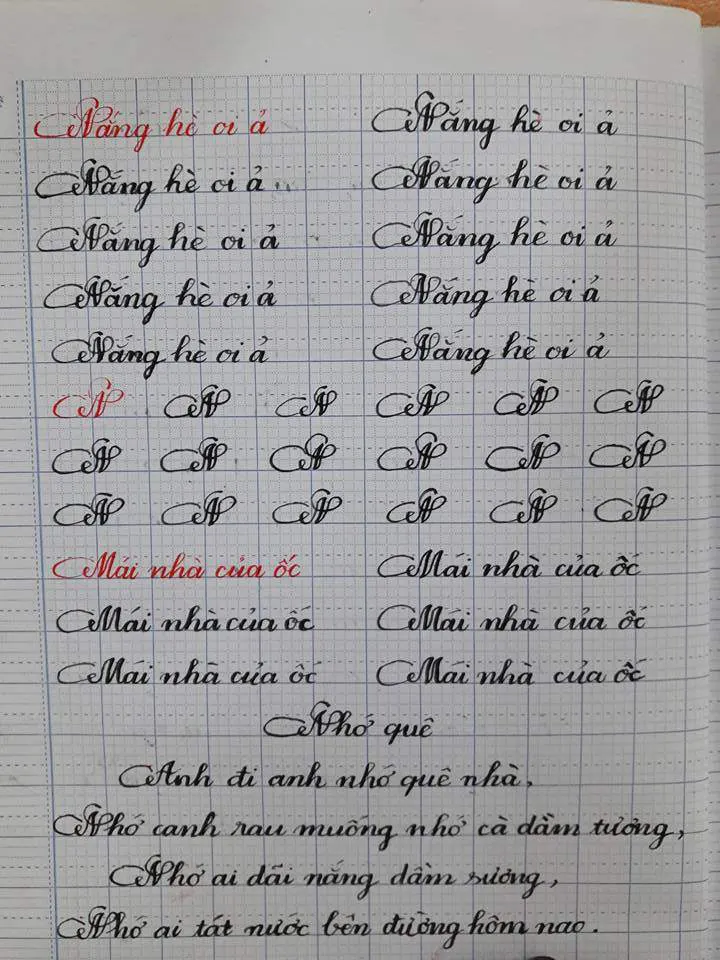 Nắng hè oi ả Nắng hè oi ả
Nắng hè oi ả Nắng hè oi ả
Nắng hè oi ả Nắng hè oi ả
Nắng hè oi ả Nắng hè oi ả
Nắng hè oi ả Nắng hè oi ả
N N N N N N
N N N N N N
N N N N N N
Mái nhà của ốc Mái nhà của ốc
Mái nhà của ốc Mái nhà của ốc
Mái nhà của ốc Mái nhà của ốc
Nhớ quê
Anh đi anh nhớ quê nhà,
Nhớ canh rau muống nhớ cà dầm tương,
Nhớ ai dãi nắng dầm sương,
Nhớ ai tát nước bên đường hôm nao.